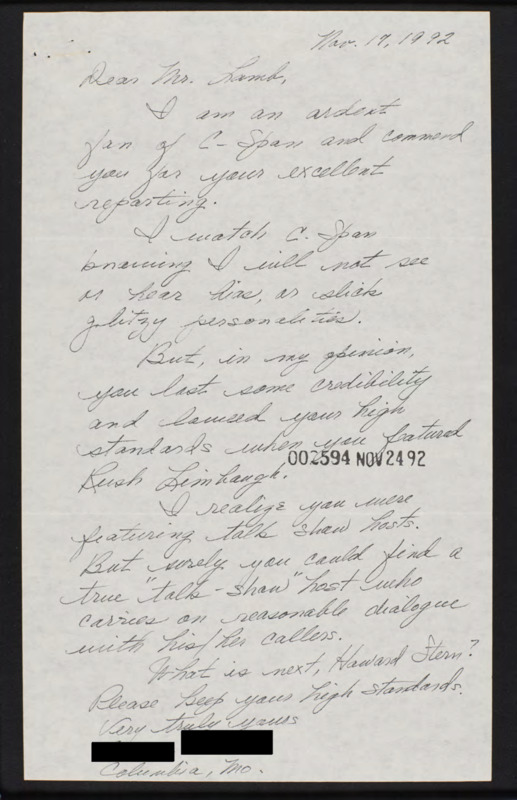 Nov. 17, 1992
Dear Mr. Lamb,
I am an ardent
fan of C-Span and commend
you for your excellent
reporting.
I watch C. Span
knowing I will not see
or hear bias, or slick
glitzy personalities.
But, in my opinion,
you lost some credibility
and lowered your high
standards when you featured
002594 NOV 24 92
Rush Limbaugh.
I realize you were
featuring talk show hosts.
But surely you could find a
true "talk-show" host who
carries on reasonable dialogue
with his/her callers.
What is next, Howard Stern?
Please keep your high standards.
Very truly yours
Columbia, Mo.